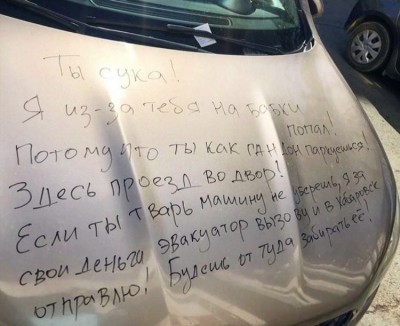 Ты сука!
Я из-за тебя на бабки попал!
Потому что ты как гандон паркуешься!
Здесь проезд во двор!
Если ты тварь машину не уберешь, я за
свои деньга эвакуатор вызову и в Хабаровск
отправлю! Будешь от туда забирать её!